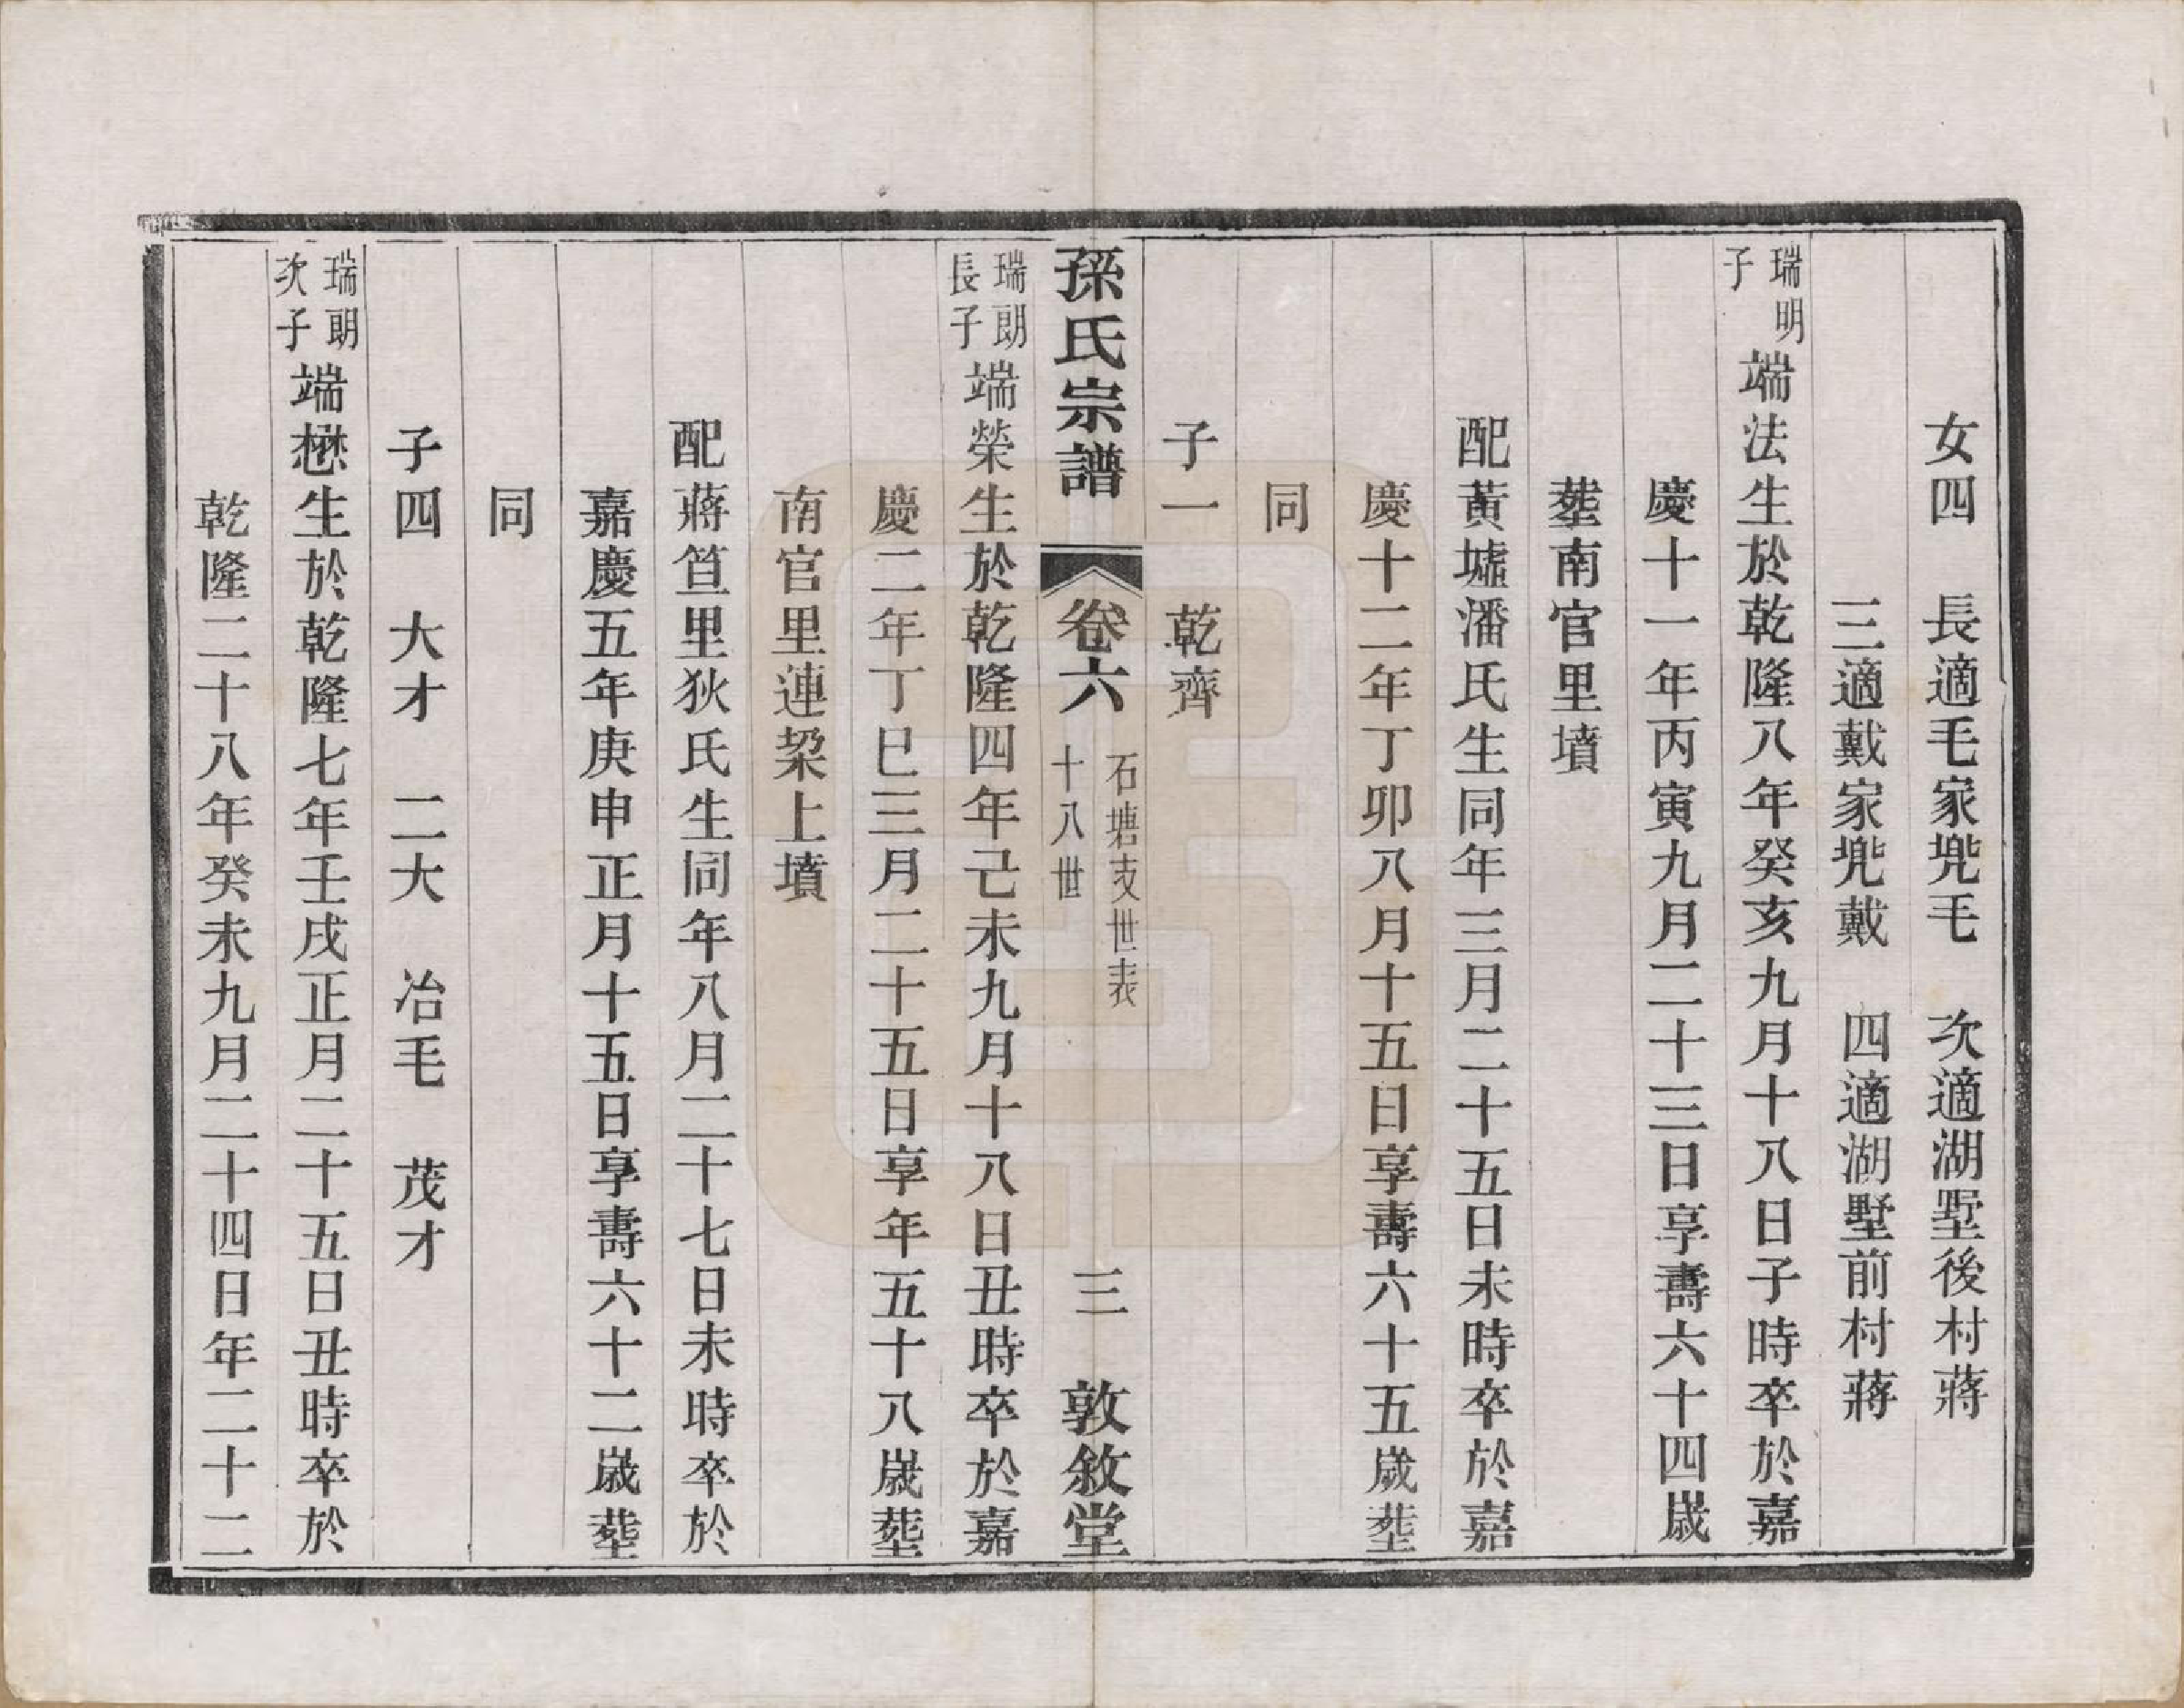 女四　長適毛家兠毛　次適湖墅後村蔣
三適戴家兠戴　四適湖墅前村蔣
瑞明子端法生於乾隆八年癸亥九月十八日子時卒於嘉
慶十一年丙寅九月二十三日享壽六十四歲
塟南官里墳
配黃墟潘氏生同年三月二十五日未時卒於嘉
慶十二年丁卯八月十五日享壽六十五歲塟
同
子一　乾齊
孫氏宗譜　卷六　石塘支世表　十八世　三　敦敘堂
瑞朗長子端榮生於乾隆四年己未九月十八日丑時卒於嘉
慶二年丁巳三月二十五日享年五十八歲塟
南官里連梁上墳
配蔣笪里狄氏生同年八月二十七日未時卒於
嘉慶五年庚申正月十五日享壽六十二歲塟
同
子四　大才　二大　冶毛　茂才
瑞朗次子端懋生於乾隆七年壬戌正月二十五日丑時卒於
乾隆二十八年癸未九月二十四日年二十二